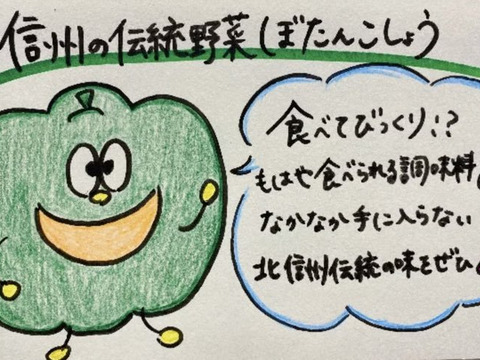 信州の伝統野菜ぼたんこしょう
食べてびっくり!?
もはや食べられる調味料
なかなか手に入らない
北信州伝統の味をぜひ